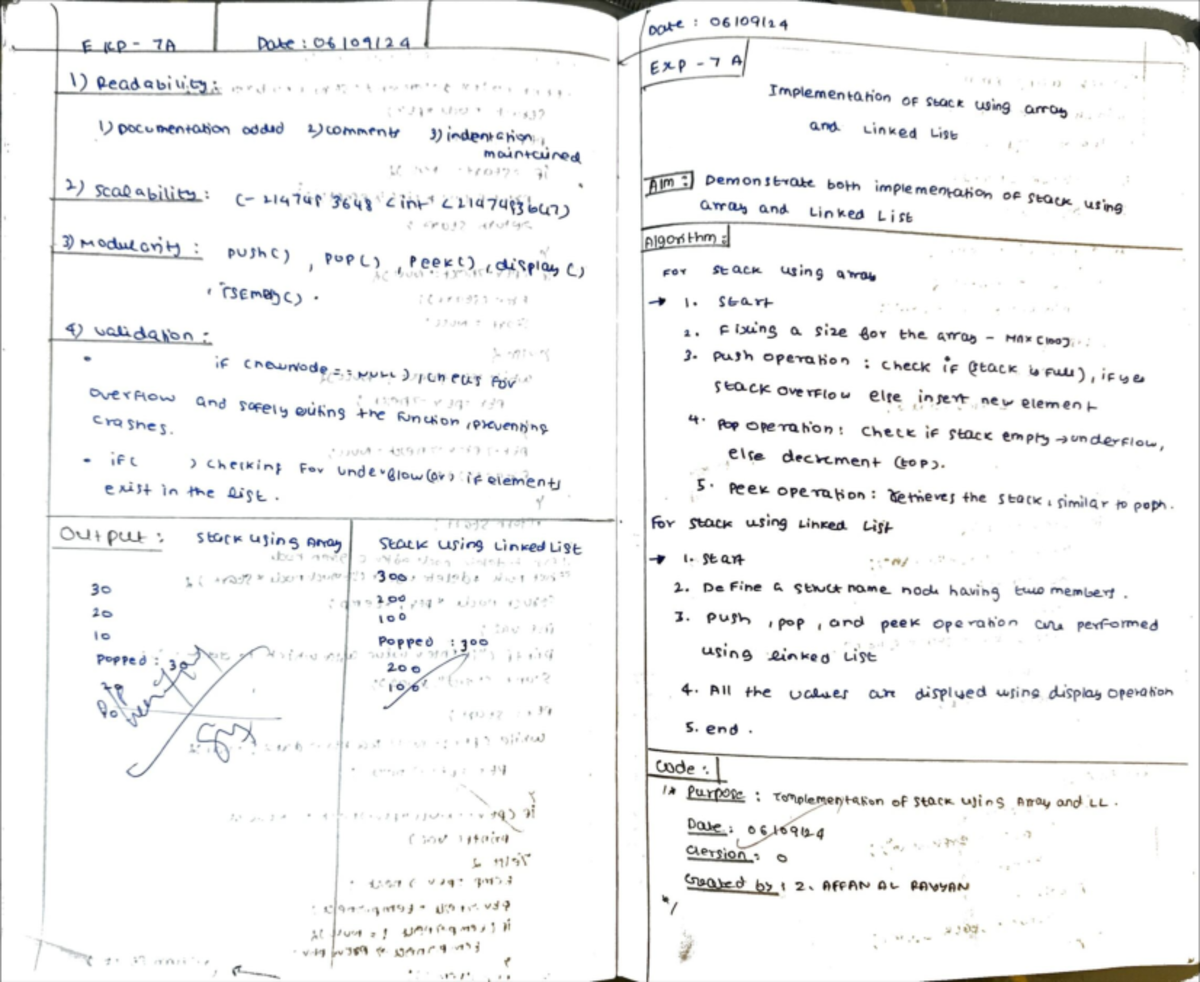 Exp - 7A Date : 06/09/24
1) Readability :
1) Documentation added 2) comments 3) indentation
maintained
2) Scalability : (-2147483648 < int < 2147483647)
3) Modularity : push() , pop() , peek() , display()
, isEmpty() .
4) validation :
• if (newNode == NULL) , checks for
overflow and safely exiting the function , preventing
crashes.
• if( ) checking for underflow (or) if elements
exist in the list .
Output : Stack using Array Stack using Linked List
30 300
20 200
10 100
Popped : 30 Popped : 300
20 200
100
Date : 06/09/24
Exp - 7 A
Implementation of stack using array
and Linked List
Aim : Demonstrate both implementation of stack using
array and Linked List
Algorithm :
For stack using array
→ 1. Start
2. Fixing a size for the array - MAX (100).
3. push operation : check if (stack is full), if yes
stack overflow else insert new element
4. Pop operation : check if stack empty → underflow,
else decrement (top).
5. Peek operation : Retrieves the stack, similar to
For stack using Linked List
→ 1. Start
2. Define a struct name node having two members .
3. Push , pop , and peek operation are performed
using linked list
4. All the values are displyed using display operation
5. end .
Code :
/* Purpose : Implementation of stack using Array and LL .
Date : 06/09/24
Version : 0
Created by : 2. AFFAN AL RAYYAN
*/